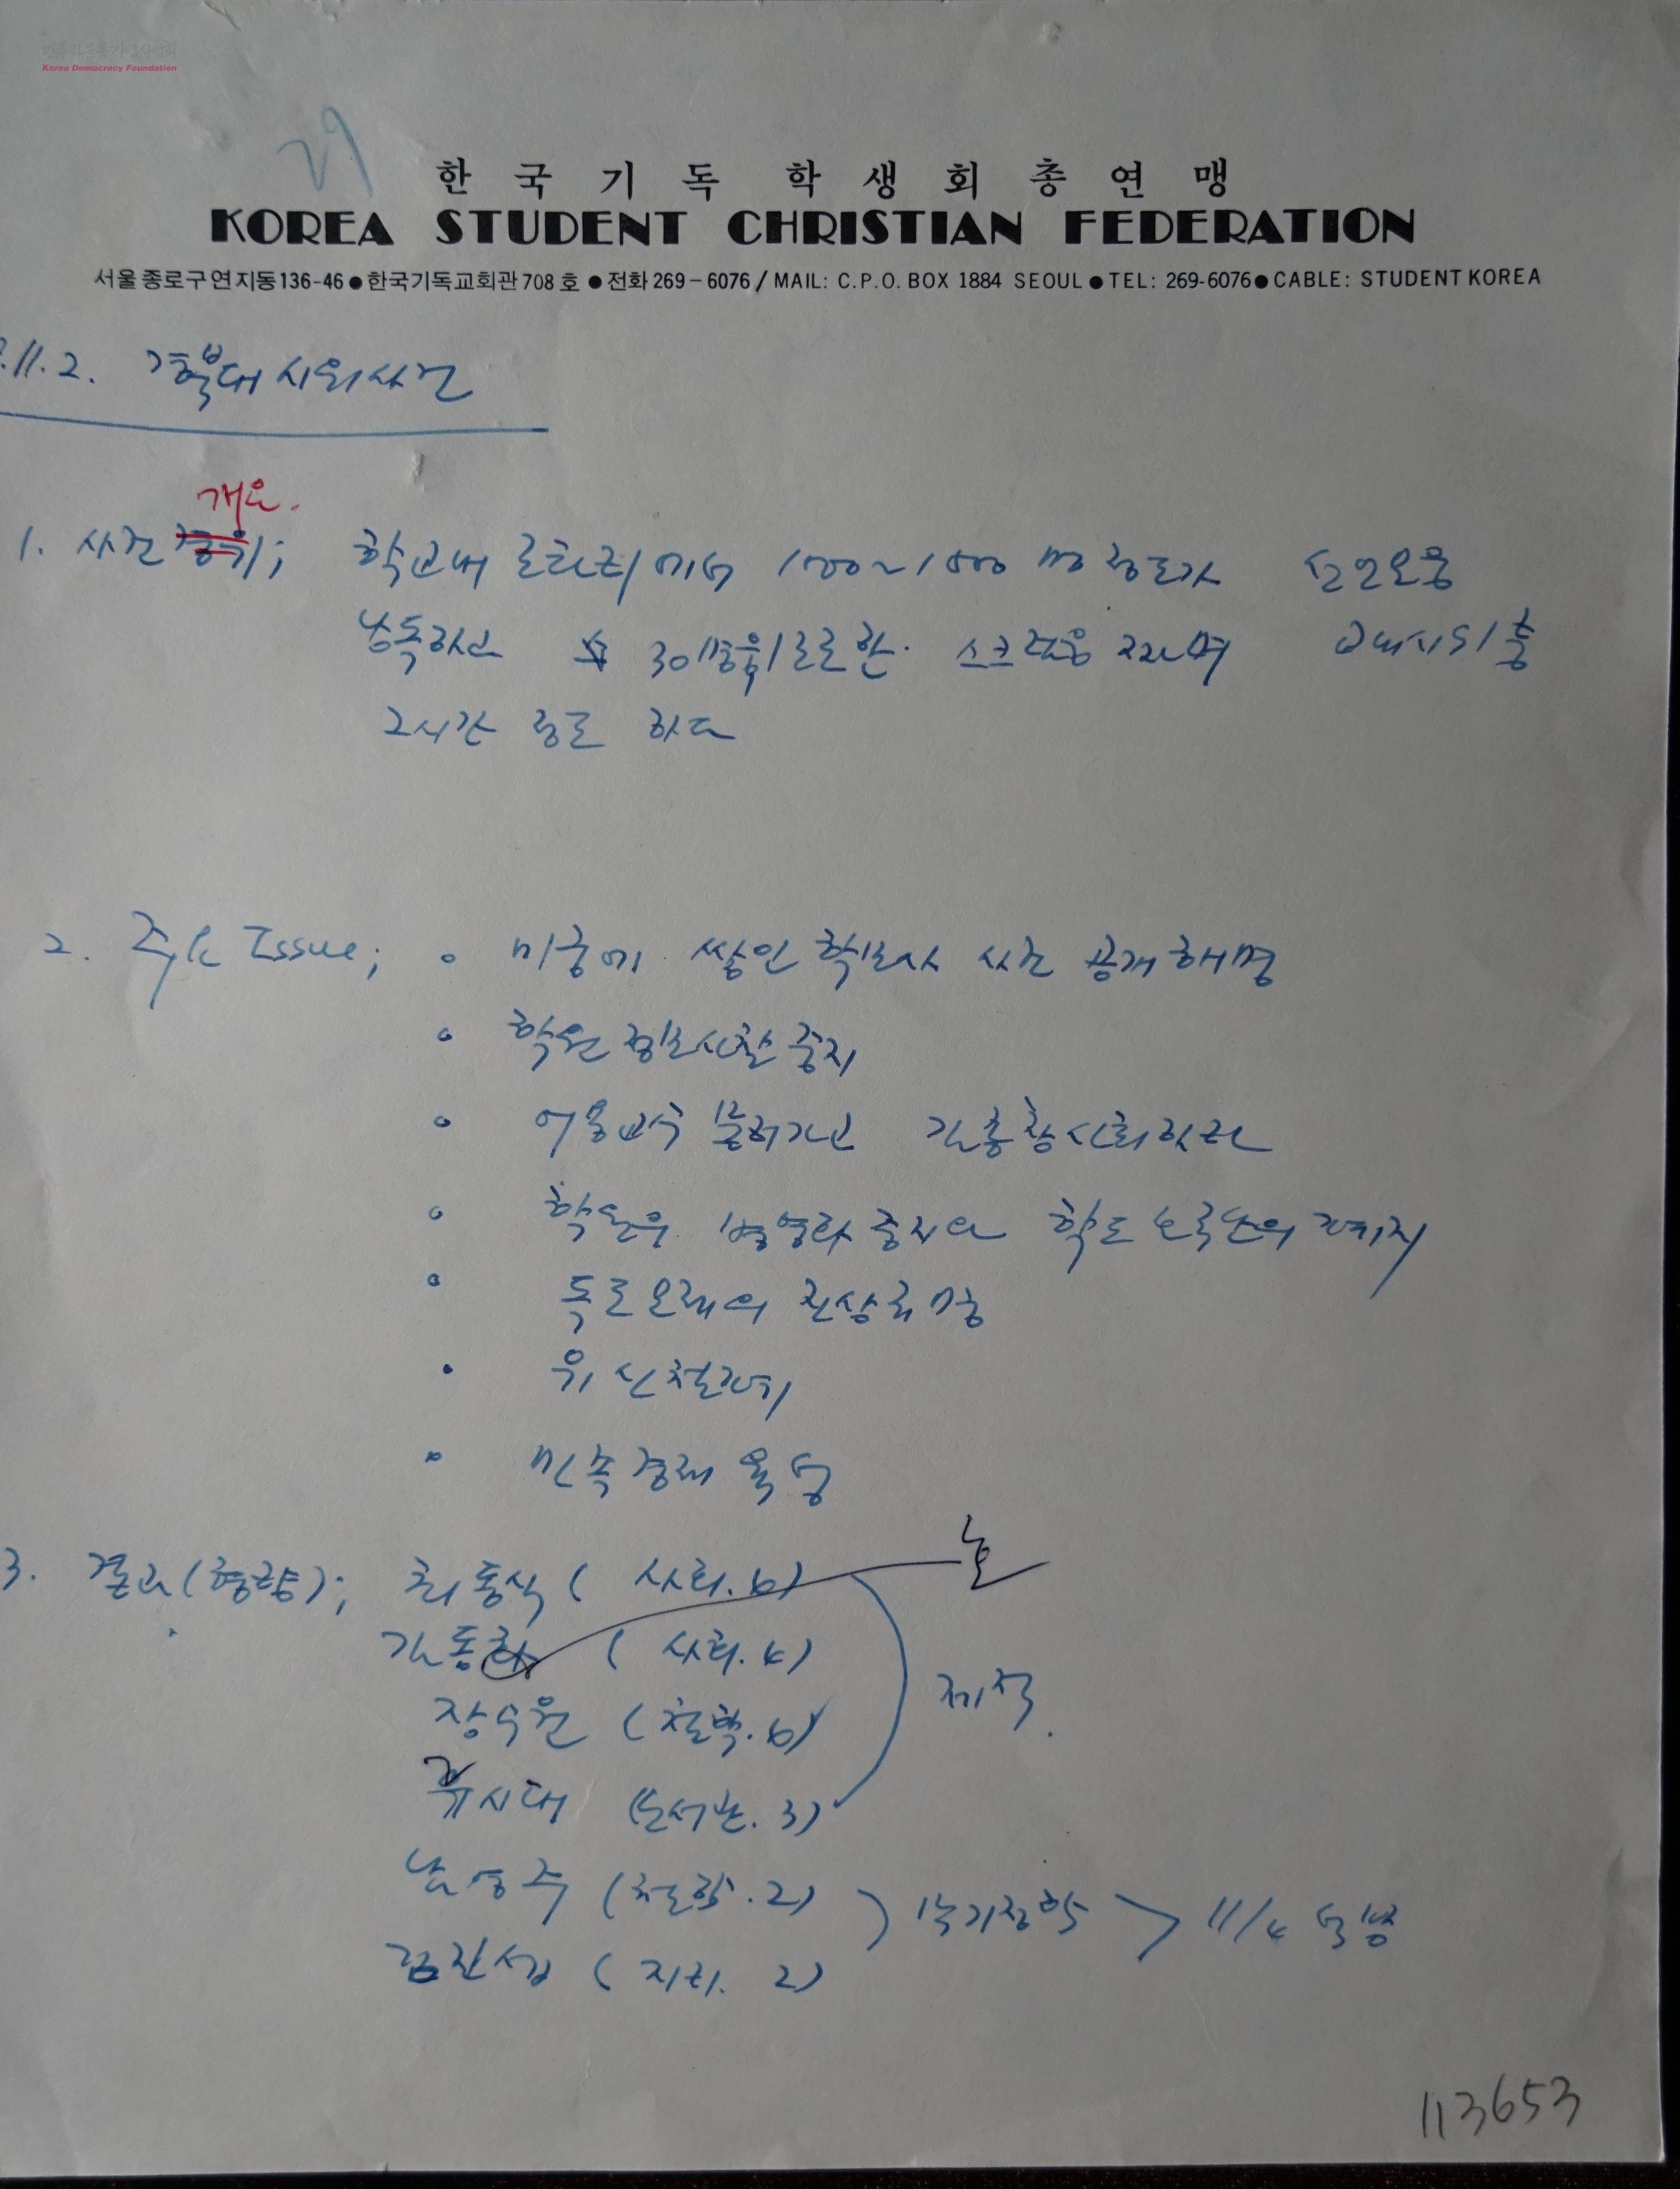 민주화운동기념사업회
Korea Democracy Foundation
한국기독학생회총연맹
KOREA STUDENT CHRISTIAN FEDERATION
서울 종로구 연지동 136-46 ● 한국기독교회관 708 호 ● 전화 269-6076 / MAIL: C.P.O. BOX 1884 SEOUL ● TEL: 269-6076 ● CABLE: STUDENT KOREA
.11.2. 경북대 시위사건
개요.
1. 사건 경위; 학교내 로타리에서 1000~1500명 정도가 선언문을
낭독하고 30명 스크럼을 짜며 교내시위를
2시간 정도 하다
2. 주요 Issue; ◦ 미궁에 쌓인 학보사 사건 공개해명
◦ 학원 정보사찰 중지
◦ 어용교수 물러가고 김총장 사퇴하라
◦ 학원 병영화 중지와 학도호국단의 폐지
◦ 독도문제의 진상규명
• 유신철폐
• 민족경제 육성
3. 결과(형량); 최동식 (사회.4)
김동 (사회.4)
장수원 (철학.4)
류시대 (도서관.3)
제적.
남영주 (철학.2)
김진섭 (지리.2)
무기정학 > 11/4 석방
113653